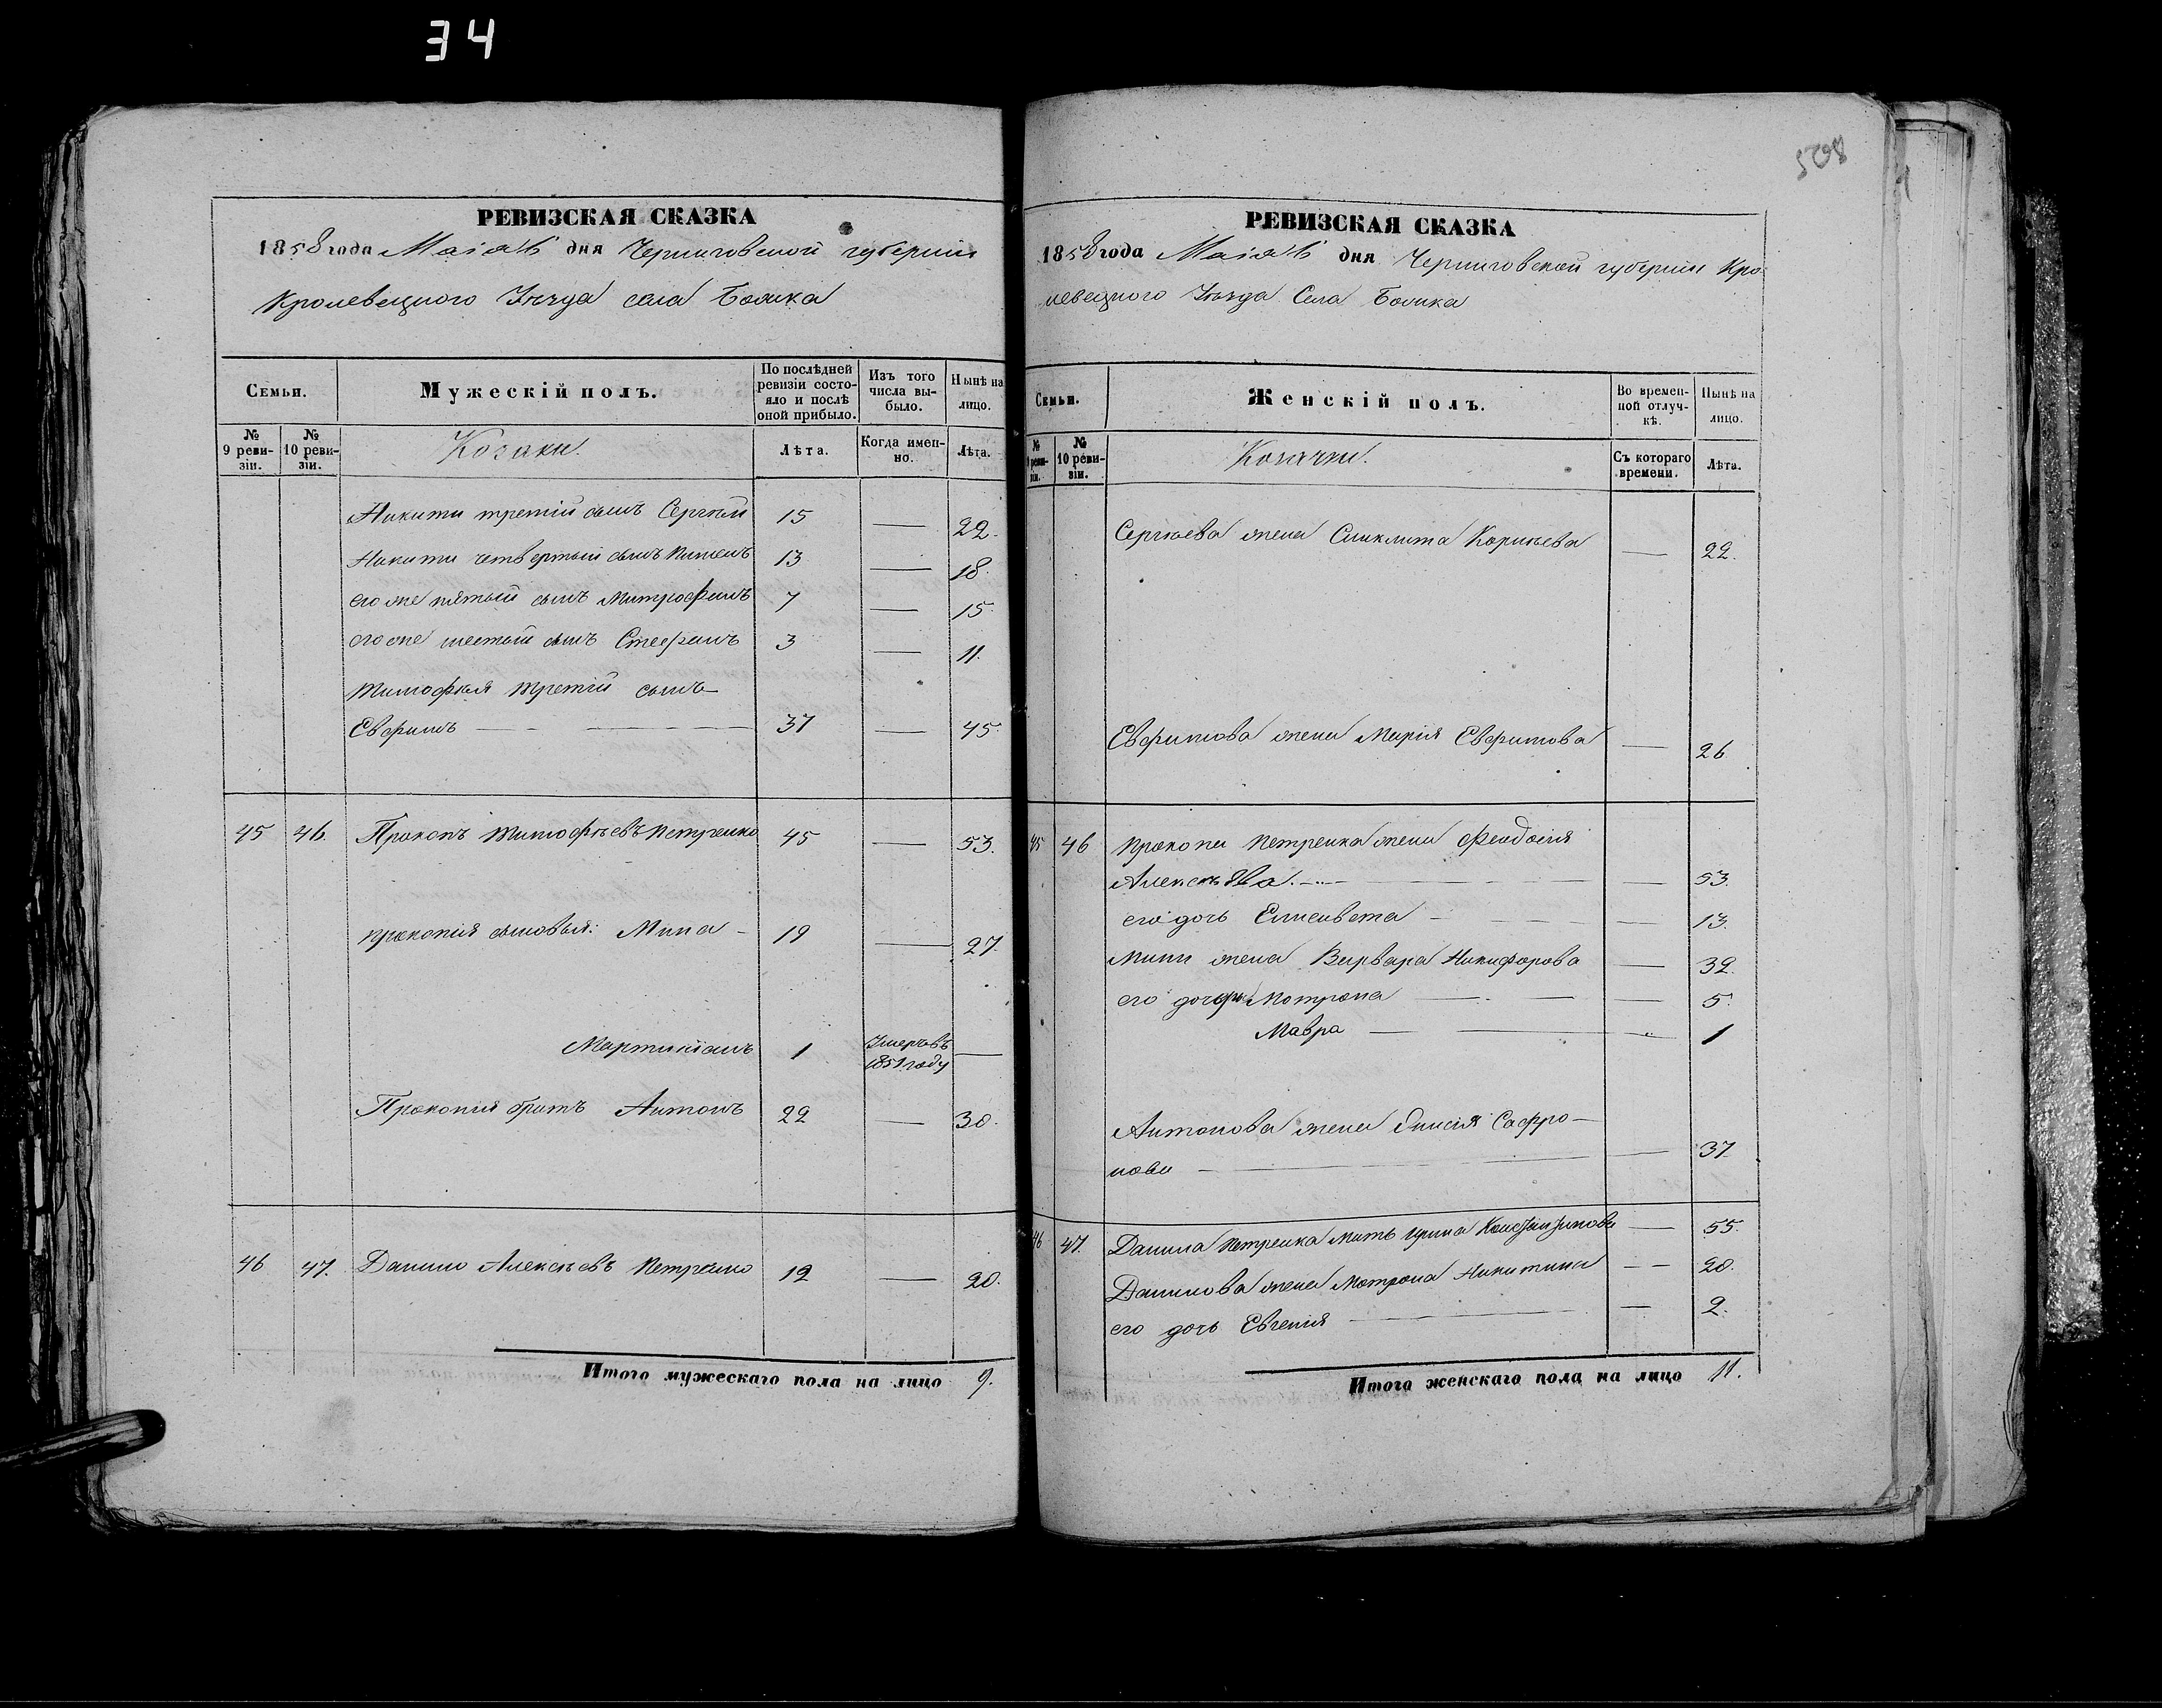 34
РЕВИЗСКАЯ СКАЗКА
1858 года Маія дня Черниговской губерніи
Кролевецкаго Уѣзда села
Семьи.
Мужескій полъ.
По послѣдней ревизіи состояло и послѣ оной прибыло.
Изъ того числа выбыло.
Нынѣ на лицо.
№ 9 ревизіи.
№ 10 ревизіи.
Козаки.
Лѣта.
Когда именно.
Лѣта.
Никиты третій сынъ Сергѣй 15 — 22.
Никиты четвертый сынъ Пименъ 13 — 18.
его же пятый сынъ Митрофанъ 7 — 15
его же шестый сынъ Стефанъ 3 — 11.
Тимофея третій сынъ
Евфимъ — 37 — 45.
45 46. Прокопъ Тимофѣевъ Петренко 45 — 53.
Прокопія сыновья: Мина - 19 — 27.
Мартиніанъ 1 Умеръ въ 1851 году —
Прокопія братъ Антонъ 22 — 30.
46 47. Данило Алексѣевъ Петренко 12 — 20.
Итого мужескаго пола на лицо 9.
РЕВИЗСКАЯ СКАЗКА
1858 года Маія дня Черниговской губерніи Кро-
левецкаго Уѣзда Села
Семьи.
Женскій полъ.
Во временной отлучкѣ.
Нынѣ на лицо.
№ 9 ревизіи.
№ 10 ревизіи.
Козачки.
Съ котораго времени.
Лѣта.
Сергѣева жена Синклита Корнѣева — 22.
Евфимова жена Марія Евфимова — 26
45 46 Прокопа Петренка жена Феодосія
Алексѣева — 53.
его дочь Елисавета — 13.
Мины жена Варвара Никифорова — 32.
его дочери Мотрона — 5.
Мавра — 1
Антонова жена Анисія Сафро-
нова — 37.
46 47. Данила Петренка мать Ирина Константинова — 55.
Данилова жена Мотрона Никитина — 20.
его дочь Евгенія — 2.
Итого женскаго пола на лицо 11.